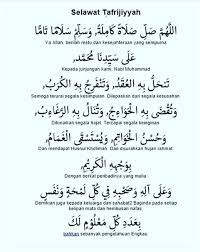 Selawat Tafrijiyyah
اَللَّهُمَّ صَلِّ صَلَاةً كَامِلَةً، وَسَلِّمْ سَلَامًا تَامًّا
Ya Allah, berilah restu dan kesejahteraan yang sempurna
عَلَى سَيِّدِنَا مُحَمَّدٍ،
Kepada junjungan kami, Nabi Muhammad
تَنْحَلُّ بِهِ الْعُقَدُ، وَتَنْفَرِجُ بِهِ الْكُرَبُ،
Semoga terurai segala kesimpulan. Dilepaskan dari segala kesusahan
وَتُقْضَى بِهِ الْحَوَائِجُ، وَتُنَالُ بِهِ الرَّغَائِبُ،
Ditunaikan segala hajat. Tercapai segala keinginan
وَحُسْنُ الْخَوَاتِمِ، وَيُسْتَسْقَى الْغَمَامُ،
Dan mendapat Husnul Khotimah. Dan dicurahkan hujan rahmat
بِوَجْهِهِ الْكَرِيْمِ،
Dengan berkat peribadinya yang mulia
وَعَلَى آلِهِ وَصَحْبِهِ فِي كُلِّ لَمْحَةٍ وَنَفَسٍ
Demikian juga kepada keluarga dan sahabat? Baginda pada setiap
kelipan mata dan hembusan nafas,
بِعَدَدِ كُلِّ مَعْلُومٍ لَكَ
bahkan sebanyak pengetahuan Engkau.